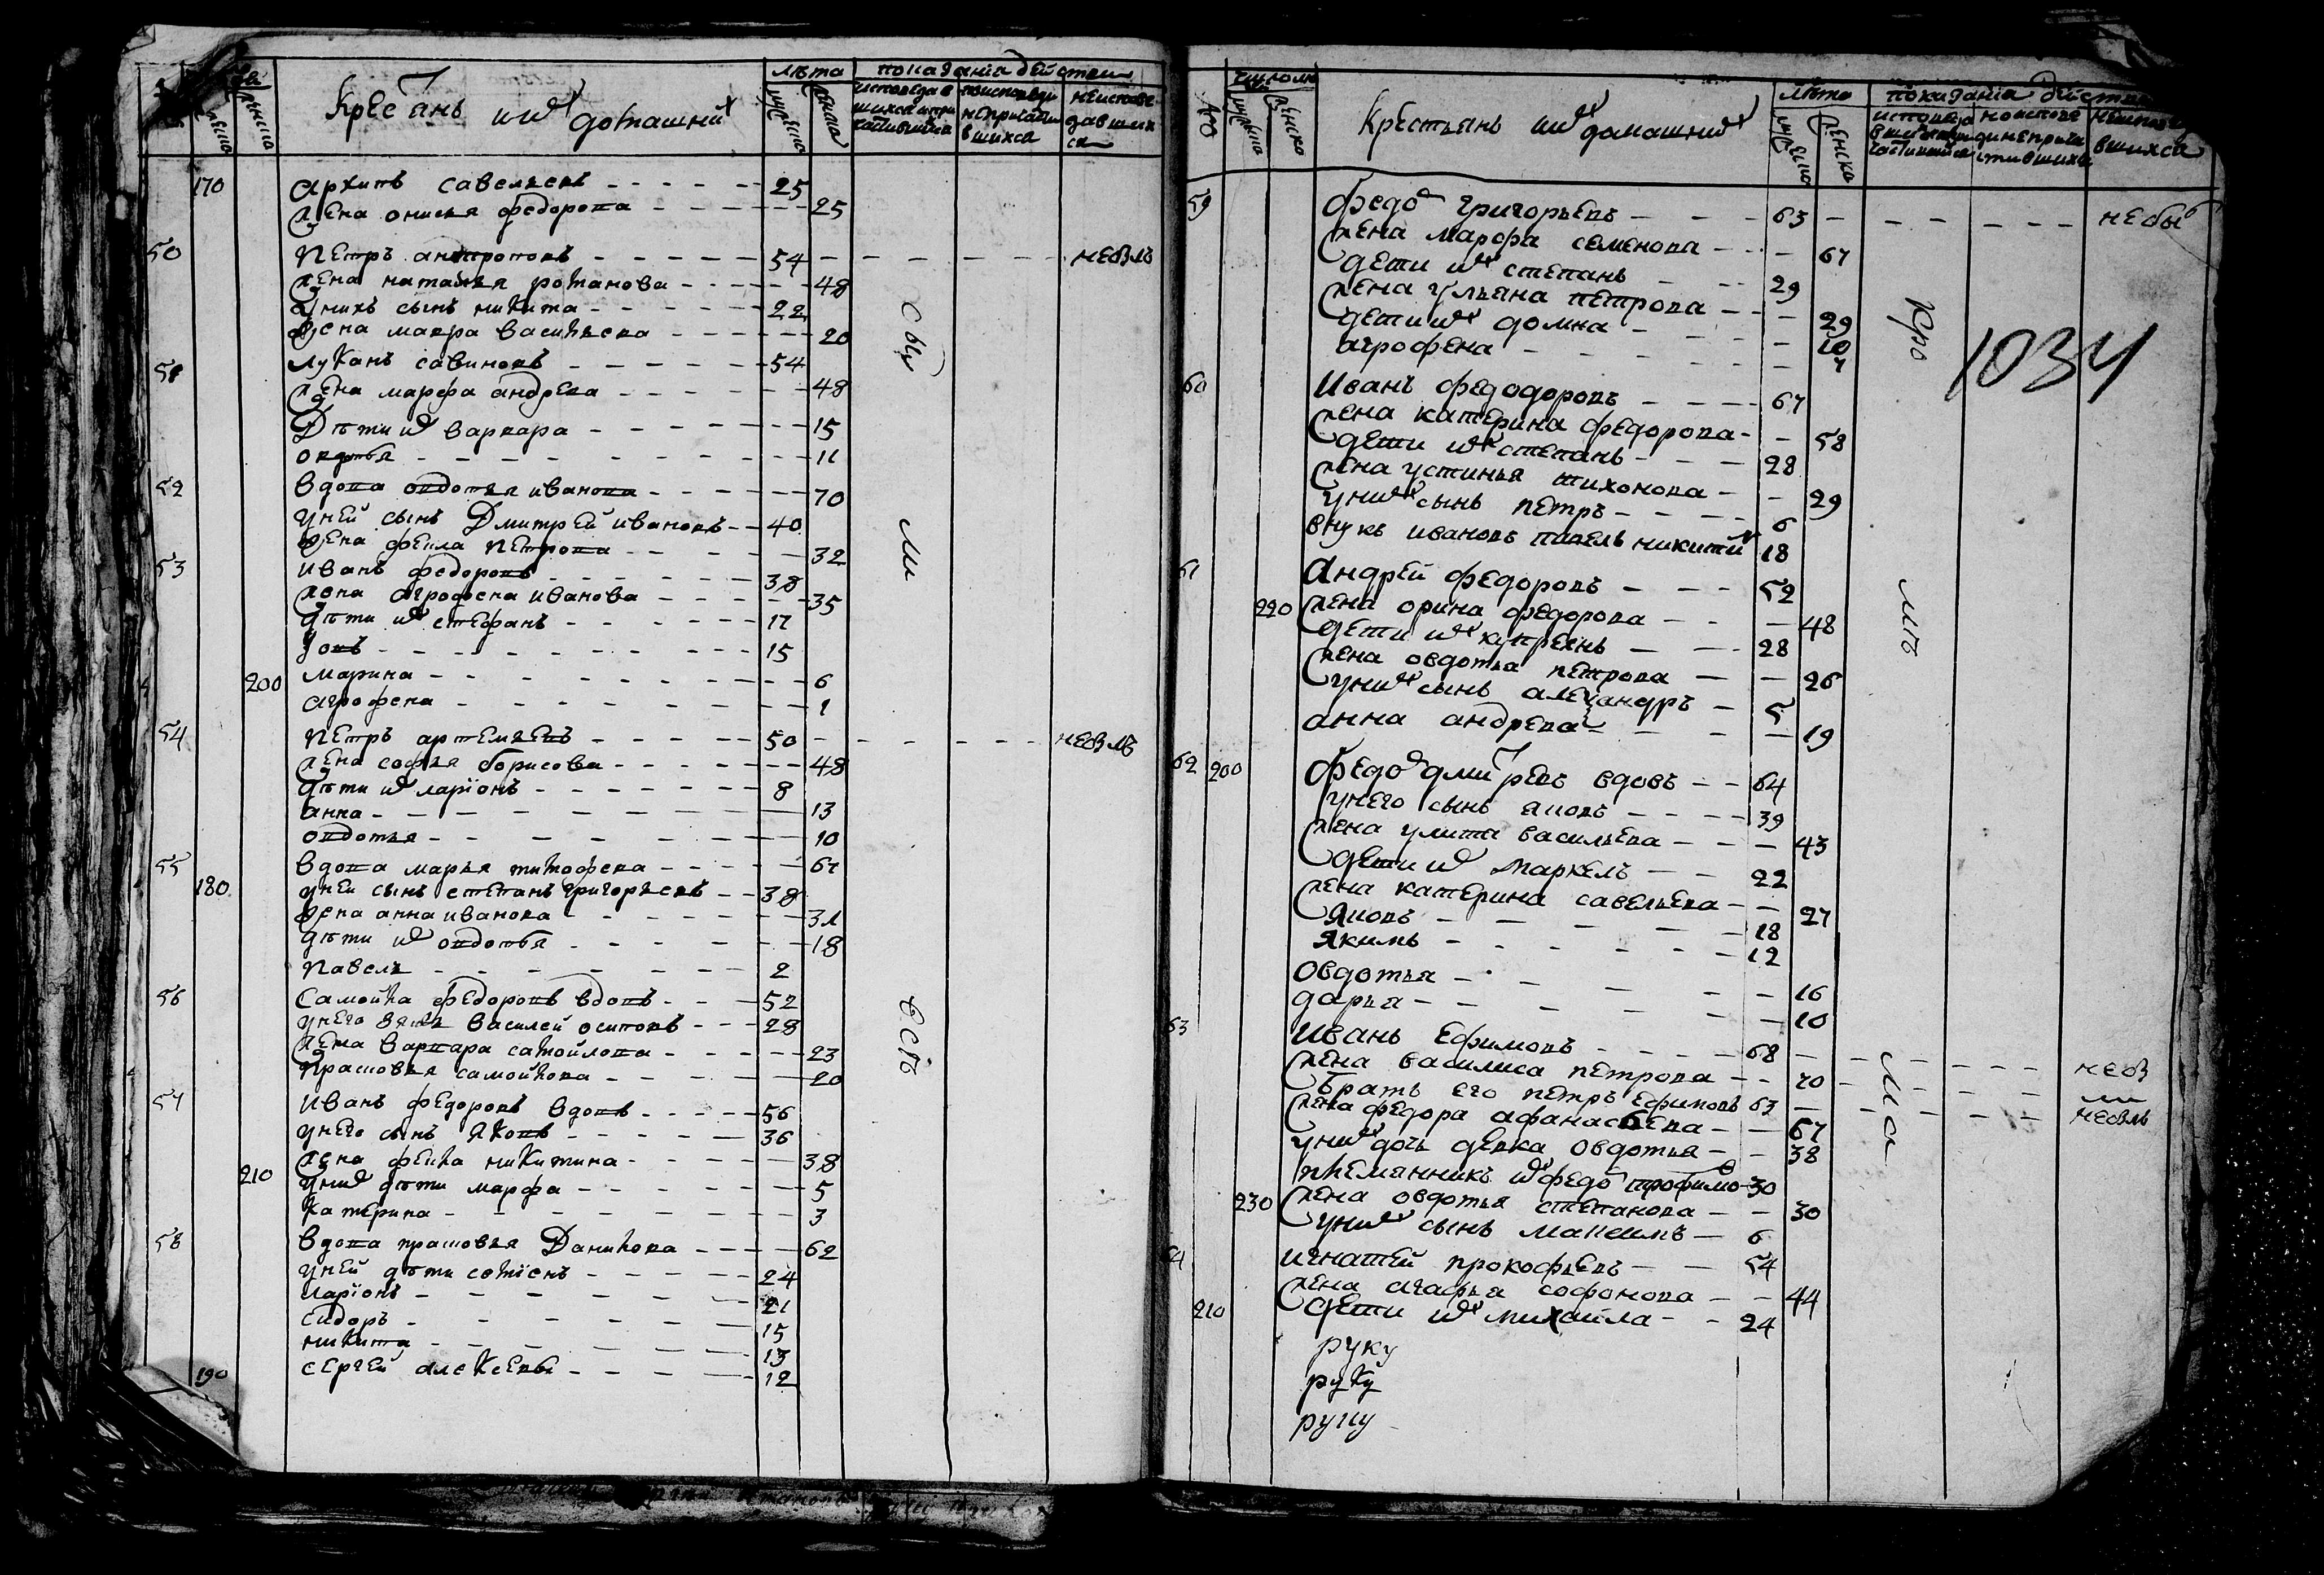 Крестьянъ и их домашних
лѣта
показанія действи
170 архипъ савельевъ 25
жена онисья федорова 25
50 петръ антроповъ 54 небылъ
жена наталья романова 48
у них сынъ никита 22
жена мавра васильева 20
51 луканъ савиновъ 54
жена марфа андрева 48
Дѣти их варвара 15
овдотья 11
52 вдова овдотья иванова 70
у ней сынъ Дмитрей ивановъ 40
жена фекла петрова 32
53 иванъ федоровъ 38
жена агрофена иванова 35
дѣти их стефанъ 17
15
200 марина 6
агрофена 1
54 петръ артемьевъ 50 небылъ
жена софья борисова 48
дѣти их ларіонъ 8
анна 13
овдотья 10
55 вдова марья тимофева 67
180 у ней сынъ степанъ григорьевъ 38
жена анна иванова 31
дѣти их овдотья 18
павелъ 2
56 самойла федоровъ вдовъ 52
у него зять василей осиповъ 28
жена варвара самойлова 23
прасковья самойлова 20
57 иванъ федоровъ вдовъ 56
у него сынъ яковъ 36
жена фекла никитина 38
210 у них дѣти марфа 5
катерина 3
58 вдова прасковья Данилова 62
у ней дѣти семіонъ 24
ларіонъ 21
сидоръ 15
никита 13
190 сергей алексевы 12
Крестьянъ и их домашних
лѣта
показанія действи
59 федор григорьевъ 63 небы
жена марфа семенова 67
дети их степанъ 29
жена ульяна петрова 29
дети их домна 10
агрофена 7
1034
60 иванъ федодоровъ 67
жена катерина федорова 58
дети их степанъ 28
жена устинья тихонова 29
у них сынъ петръ 6
внукъ ивановъ павелъ никитин 18
61 андрей федоровъ 52
220 жена орина федорова 48
дети их купреянъ 28
жена овдотья петрова 26
у них сынъ александръ 5
анна андрева 19
62 200 федор дмитревъ вдовъ 64
у него сынъ яковъ 39
жена улита васильева 43
дети их маркелъ 22
жена катерина савельева 27
яковъ 18
якимъ 12
овдотья 16
дарья 10
63 иванъ ефимовъ 68
жена василиса петрова 70
братъ его петръ ефимовъ 63
жена федора афанасьева 67 небылъ
у них дочь девка овдотья 38
племянникъ их федор трофимо 30
230 жена овдотья степанова 30
у них сынъ максимъ 6
64 игнатей прокофьевъ 54
жена агафья софонова 44
210 дети их михайла 24
руку
руку
руку